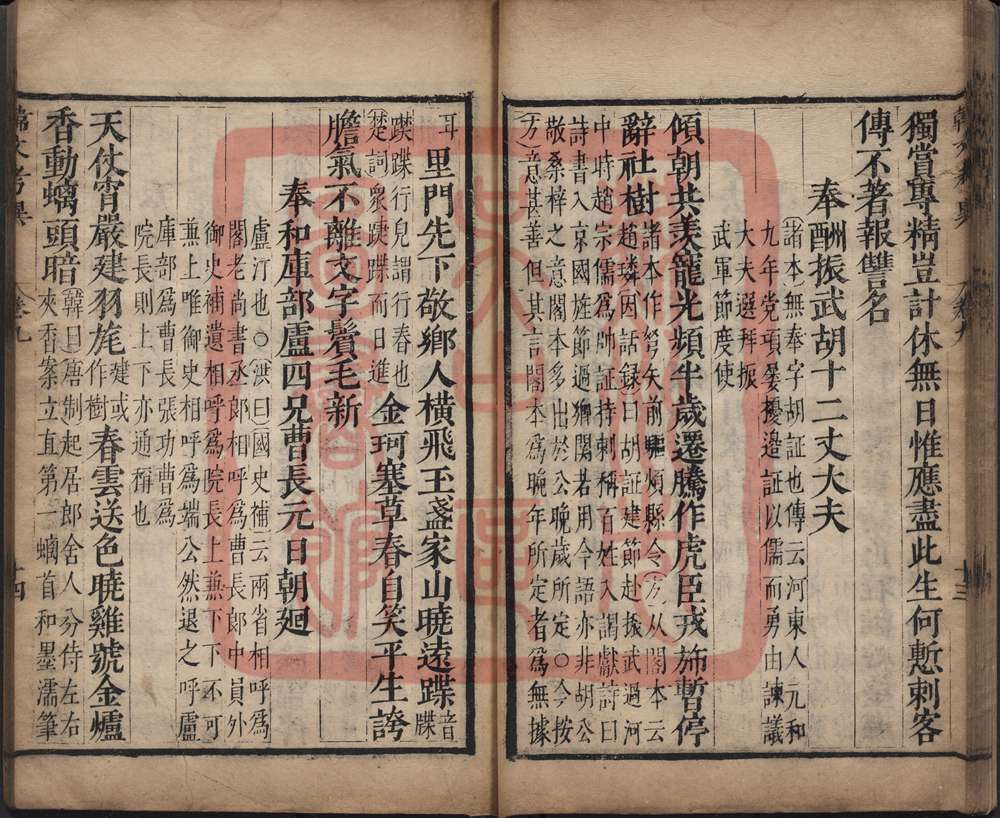 獨賞專精豈計休無日惟應盡此生何慙刺客
傳不著報讐名
奉酬振武胡十二丈大夫
諸本無奉字胡証也傳云河東人元和
九年党項屡擾邊証以儒而勇由諫議
大夫選拜振
武軍節度使
傾朝共羡寵光頻半歲遷騰作虎臣戎斾暫停
辭社樹
諸本作弩矢前驅煩縣令方从閣本云
趙璘因話録曰胡証建節赴振武過河
中時趙宗儒爲帥証持刺稱百姓入謁獻詩曰
詩書入京國旌節過鄉関若用今語亦非胡公
敬桑梓之意閣本多出於公晚歲所定○今按
方意甚善但其言閣本爲晚年所定者爲無據
耳
里門先下敬鄉人横飛玉盞家山曉遠蹀
音
牒
蹀蹀行兒謂行春也
楚詞衆踥蹀而日進
金珂塞草春自笑平生誇
膽氣不離文字鬢毛新
奉和庫部盧四兄曹長元日朝廻
盧汀也○洪曰國史補云兩省相呼爲
閣老尚書丞郎相呼爲曹長郎中員外
御史補遺相呼爲院長上兼下下不可
兼上唯御史相呼爲端公然退之呼盧
庫部爲曹長張功曹爲
院長則上下亦通稱也
天仗宵嚴建羽旄
建或
作樹
春雲送色曉雞號金爐
香動螭頭暗
韓曰唐制起居郎舍人分侍左右
夾香案立直第一螭首和墨濡筆
卷九
十四